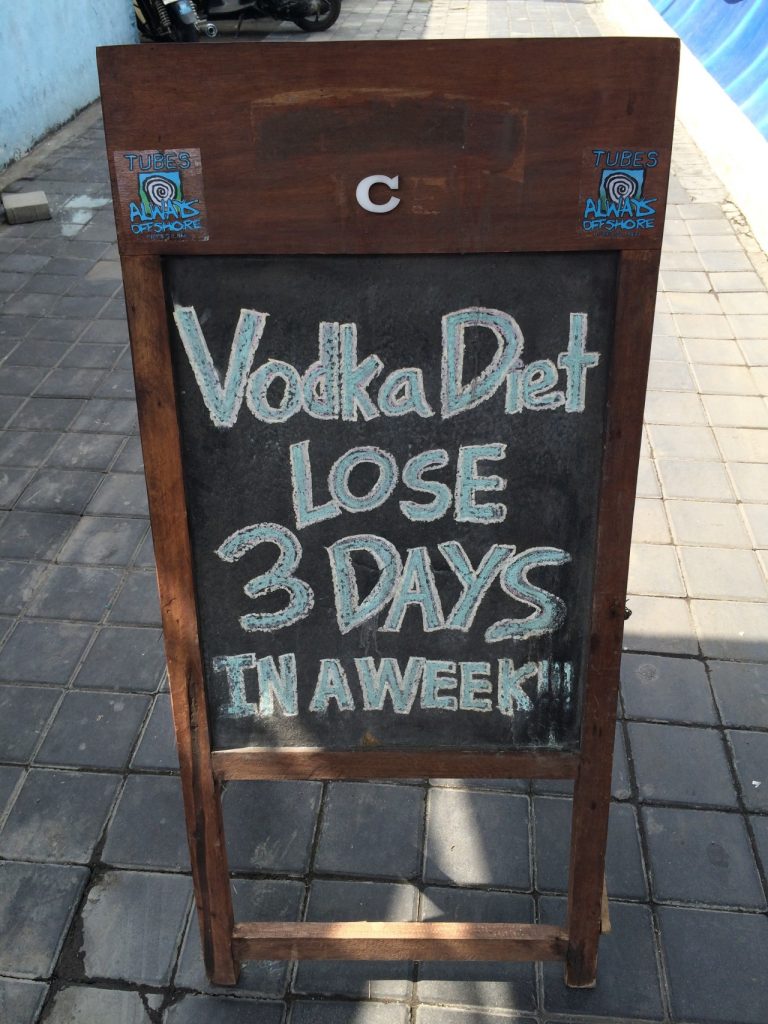 TUBES
ALWAYS
OFFSHORE
C
TUBES
ALWAYS
OFFSHORE
Vodka Diet
LOSE
3 DAYS
IN A WEEK!!